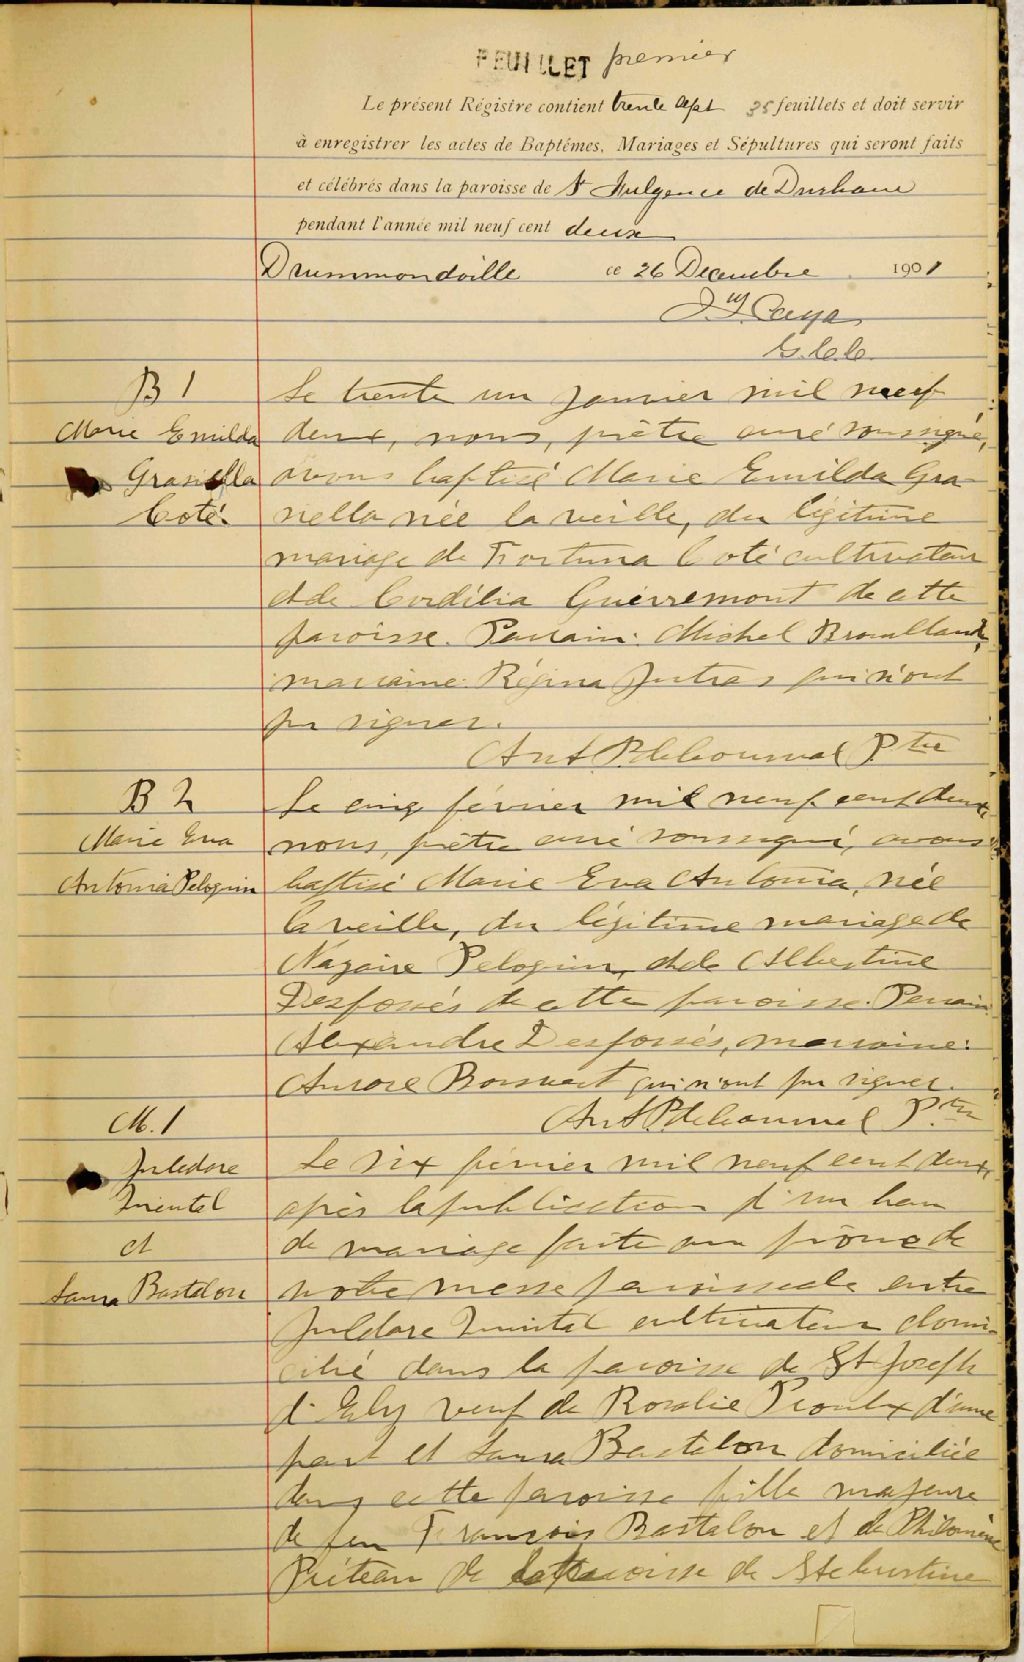 FEUILLET premier
Le présent Régistre contient trente sept 35 feuillets et doit servir
à enregistrer les actes de Baptêmes, Mariages et Sépultures qui seront faits
et célébrés dans la paroisse de St Fulgence de Durham
pendant l'année mil neuf cent deux
Drummondville ce 26 Decembre 1901
J. Caya
G.C.C.
B 1
Marie Emilda
Graziella
Coté.
Le trente un janvier mil neuf
deux, nous, prêtre curé soussigné,
avons baptisé Marie Emilda Gra-
nella née la veille, du légitime
mariage de Fortuna Coté cultivateur
et de Cordélia Guévremont de cette
paroisse. Parrain: Michel Brouillard,
marraine: Régina Jutras qui n'ont
pu signer.
Ptre
B 2
Marie Eva
Antonia Peloquin
Le cinq février mil neuf cent deux
nous, prêtre curé soussigné, avons
baptisé Marie Eva Antonia, née
la veille, du légitime mariage de
Nazaire Peloquin, et de Albertine
Desfossés de cette paroisse. Parrain
Alexandre Desfossés, marraine:
Aurore Boisvert qui n'ont pu signer.
Ptre
M. 1
et
Laura Bastalon
Le six février mil neuf cent deux,
après la publication d'un ban
de mariage faite au prône de
notre messe paroissiale entre
cultivateur domi-
cilié dans la paroisse de St Joseph
d'Ely veuf de Rosalie Proulx d'une
part et Laura Bastalon domiciliée
dans cette paroisse fille majeure
de feu François Bastalon et de Philomène
Piéteau de la paroisse de Ste Christine